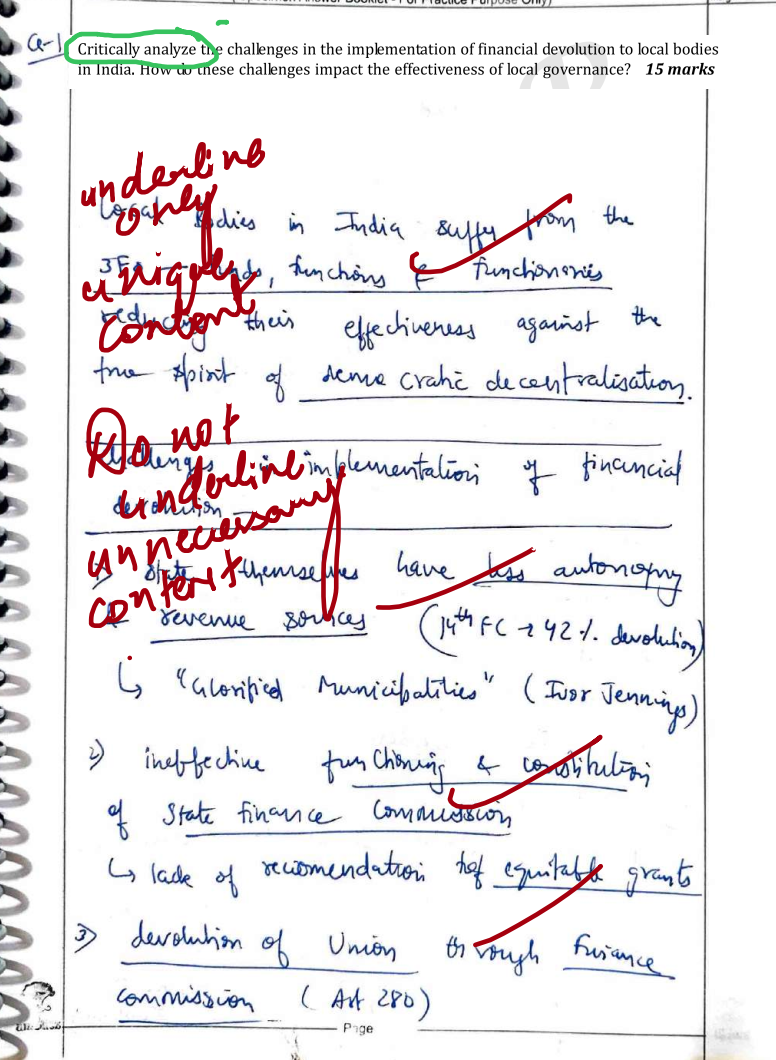 (Specimen Answer Booklet - For Practice Purpose Only)
Q-1 Critically analyze the challenges in the implementation of financial devolution to local bodies
in India. How do these challenges impact the effectiveness of local governance? 15 marks
underline
only
unique
content
Local bodies in India suffy from the
3Fs funds, functions & functionaries
reducing their effectiveness against the
true spirit of democratic decentralisation.
Do not
underline
unnecessary
content
Challenges in implementation of financial
devolution
1) State themselves have less autonomy
& revenue sources (14th FC → 42% devolution)
↳ "Glorified Municipalities" (Ivor Jennings)
2) ineffective functioning & constitution
of State finance Commission
↳ lack of recomendation of equitable grants
3) devolution of Union through Finance
commission (Art 280)
Page